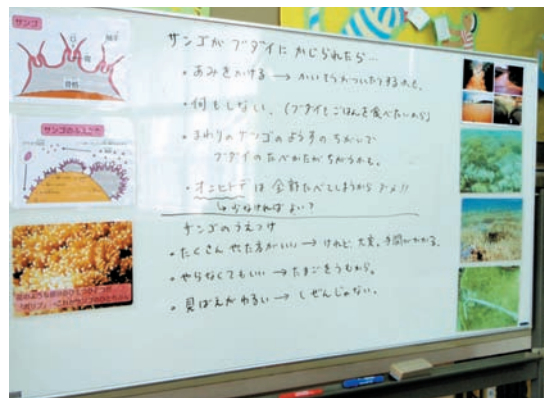 サンゴ
口
触手
胃
骨格
サンゴのふえ
サンゴが ブダイに かじられたら…
・あみをかける → かいそうがついたりするかも。
・何もしない。(ブダイもごはんを食べたいから)
・まわりのサンゴのようすのちがいで
ブダイのたべかたがちがうかも。
・オニヒトデは全部たべてしまうから ダメ!!
なければよい?
サンゴのうえつけ
・たくさん やった方がいい → けれど、大変。手間がかかる。
・やらなくてもいい → たまごをうむから。
・見ばえがわるい → しぜんじゃない。